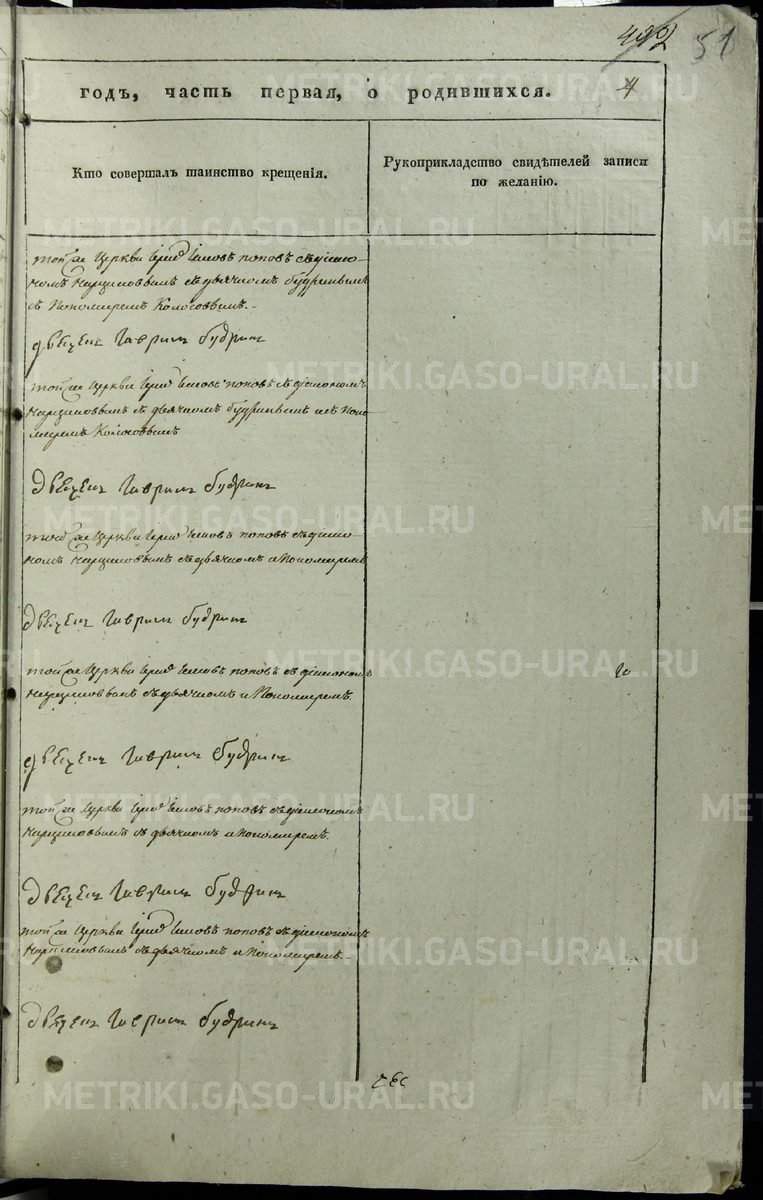 492 51
годъ, часть первая, о родившихся. 4
Кто совершалъ таинство крещенія.
Рукоприкладство свидѣтелей записи
по желанію.
той же Церкви Іерей Іаковъ поповъ съ діако-
номъ съ дьячкомъ Будринымъ
съ Пономаремъ Колосовымъ.
дьячекъ Гаврилъ Будринъ
той же Церкви Іерей Іаковъ поповъ съ діакономъ
съ дьячкомъ Будринымъ и съ Поно-
маремъ Колосовымъ
дьячекъ Гаврилъ Будринъ
той же Церкви Іерей Іаковъ поповъ съ діако
номъ съ дьячкомъ и Пономаремъ
дьячекъ Гаврилъ Будринъ
той же Церкви Іерей Іаковъ поповъ съ діакономъ
съ дьячкомъ и Пономаремъ
дьячекъ Гаврилъ Будринъ
той же Церкви Іерей Іаковъ поповъ съ діакономъ
съ дьячкомъ и пономаремъ.
дьячекъ Гаврилъ Будринъ
той же Церкви Іерей Іаковъ поповъ съ діакономъ
съ дьячкомъ и Пономаремъ.
дьячекъ Гаврилъ Будринъ
METRIKI.GASO-URAL.RU